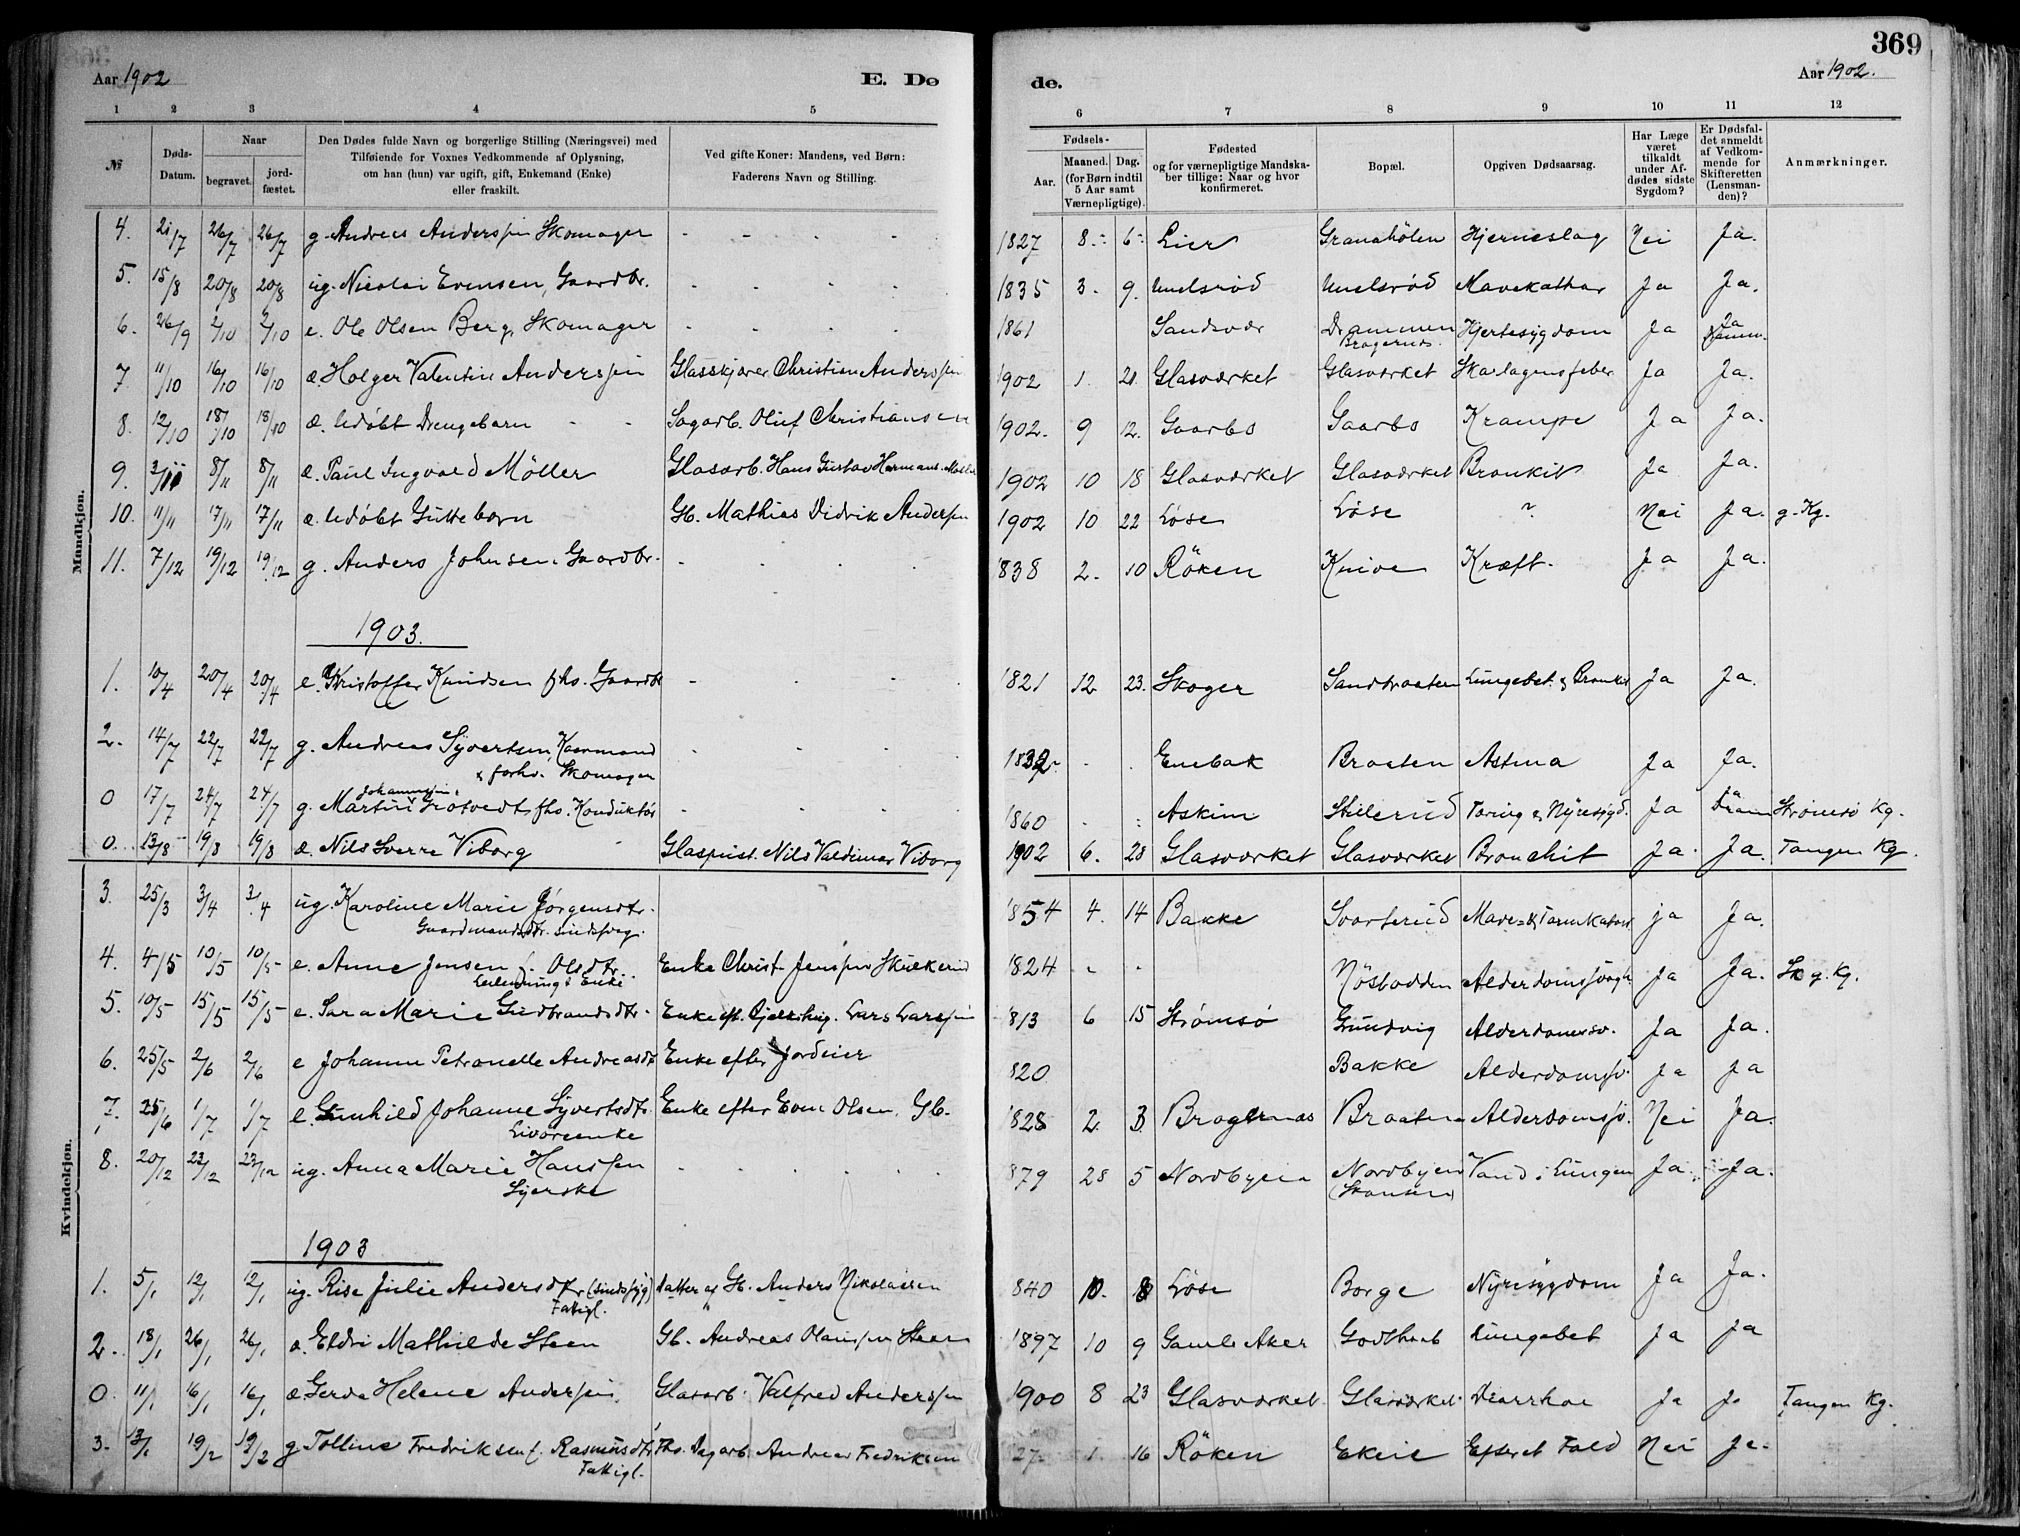 369
Aar 1902
E. Dø
de.
Aar 1902.
1 2 3 4 5 6 7 8 9 10 11 12
№
Døds-Datum.
Naar
begravet.
jord-fæstet.
Den Dødes fulde Navn og borgerlige Stilling (Næringsvei) med
Tilføiende for Voxnes Vedkommende af Oplysning,
om han (hun) var ugift, gift, Enkemand (Enke)
eller fraskilt.
Ved gifte Koner: Mandens, ved Børn:
Faderens Navn og Stilling.
Fødsels-
Aar.
Maaned. Dag.
(for Børn indtil
5 Aar samt
Værnepligtige).
Fødested
og for værnepligtige Mandska-
ber tillige: Naar og hvor
konfirmeret.
Bopæl.
Opgiven Dødsaarsag.
Har Læge
været
tilkaldt
under Af-
dødes sidste
Sygdom?
Er Dødsfal-
det anmeldt
af Vedkom-
mende for
Skifteretten
(Lensman-
den)?
Anmærkninger.
Mandkjøn.
4. 21/7 26/7 26/7 g. Andreas Anderssen Skomager - - - - 1827 8. 6 Lier Granahölen Hjerneslag Nei Ja.
5. 15/8 20/8 20/8 ug. Nicolai Evensen, Gaardbr. - - - - 1835 3. 9. Ja Ja.
6. 26/9 2/10 2/10 e. Ole Olsen Berg, Skomager - - - - 1861 Sandsvær Drammen Hjertesygdom Ja Ja
Bragernes.
7. 11/10 16/10 16/10 æ. Holger Valentin Anderssen Glasskjærer Christian Anderssen 1902 1. 21. Glasværket Glasværket Skarlagensfeber Ja Ja.
8. 12/10 18/10 18/10 æ. Udøbt Drengebarn - - Sagarb. Oluf Christiansen 1902. 9 12. Gaarbo Gaarbo Krampe Ja Ja.
9. 3/11 8/11 8/11 æ. Paul Ingvald Möller Glasarb. Hans Gustav Hermans. Möller 1902 10 18 Glasværket Glasværket Bronkit Ja Ja.
10. 11/11 17/11 17/11 æ. Udøbt Guttebarn Gb. Mathias Didrik Anderssen 1902 10 22 Løse Løse ? Nei Ja. g. Kg.
11. 7/12 19/12 19/12 g. Anders Johnsen, Gaardbr. - - - 1838 2. 10 Röken Knive Kræft. Ja Ja.
1903.
1. 10/4 20/4 20/4 e. Kristoffer Knudsen fhv. Gaardbr - - - - 1821 12 23. Skoger Sandbraaten Lungebet. & Bronkit Ja Ja.
2. 14/7 22/7 22/7 g. Andreas Syvertsen, Kaarmand - - - 1832. - . Enebak Braaten Astma Ja Ja.
& forhv. Skomager
Johannssen
0 17/7 24/7 24/7 g. Martin Grötvedt fhv. Konduktør - - - 1860 Askim Stillerud Tæring & Nyresygd. Ja Ja Dram Strömsö Kg.
0. 13/8 19/8 19/8 æ. Nils Sverre Viborg Glaspust. Nils Valdimar Viborg 1902 6. 28 Glasværket Glasværket Bronchit Ja. Ja. Tangen Kg.
Kvindekjøn.
3. 25/3 3/4 3/4 ug. Karoline Marie Jörgensdtr. 1854 4. 14 Bakke Svarterud Mave- & Tarmkatarr ja Ja.
Gaardmandsdtr. sindssvag.
4. 4/5 10/5 10/5 e. Anne Jensen f. Olsdtr. Enke Christ. Jenssen Skulkerud 1824 - - Nöstodden Alderdomssvagh Ja Ja. Sk g. Kg.
Enke.
5. 10/5 15/5 15/5 e. Sara Marie Gudbrandsdtr. Enke eft. Lars Larssen 1813 6 15 Strømsø Grundvig Alderdomssv. Ja Ja.
6. 25/5 2/6 2/6 e Johanne Petronelle Andreasdt Enke efter Jordeier 1820 Bakke Alderdomssv. Ja Ja
7. 25/6 1/7 1/7 e. Gunhild Johanne Syvertsdtr. Enke efter Even Olsen, Gb. 1828 2. 3. Bragernas Braaten Alderdomssv. Nei Ja.
Livøreenke
8. 20/12 23/12 23/12 ug. Anna Marie Hanssen - - - - 1879 28 5 Nordbyen Nordbyen Vand i Lungen Ja. Ja.
Syerske (Skansen)
1903
1. 5/1 12/1 12/1 ug. Rise Julie Andersdtr (sindssyg) datter af Gb. Anders Nikolaisen 1840 10. 8 Løse Borge Nyresygdom Ja Ja.
Fattigl.
2. 18/1 26/1 26/1 æ. Eldri Mathilde Steen Gb. Andreas Olaussen Steen 1897 10 9 Gamle Aker Godthaab Lungebet Ja Ja
0. 11/1 16/1 16/1 æ Gerda Helene Anderssen. Glasarb. Valfred Anderssen 1900 8 23 Glasværket Glasværket. Diarrhoe Ja Ja Tangen Kg.
3. 13/1 19/2 19/2 g Tolline Fredriksen f. Rasmusdtr Fhv. Dagarb. Andreas Fredriksen 27 1. 16 Röken Ekeie Efter et Fald Nei Ja.
Fattigl.